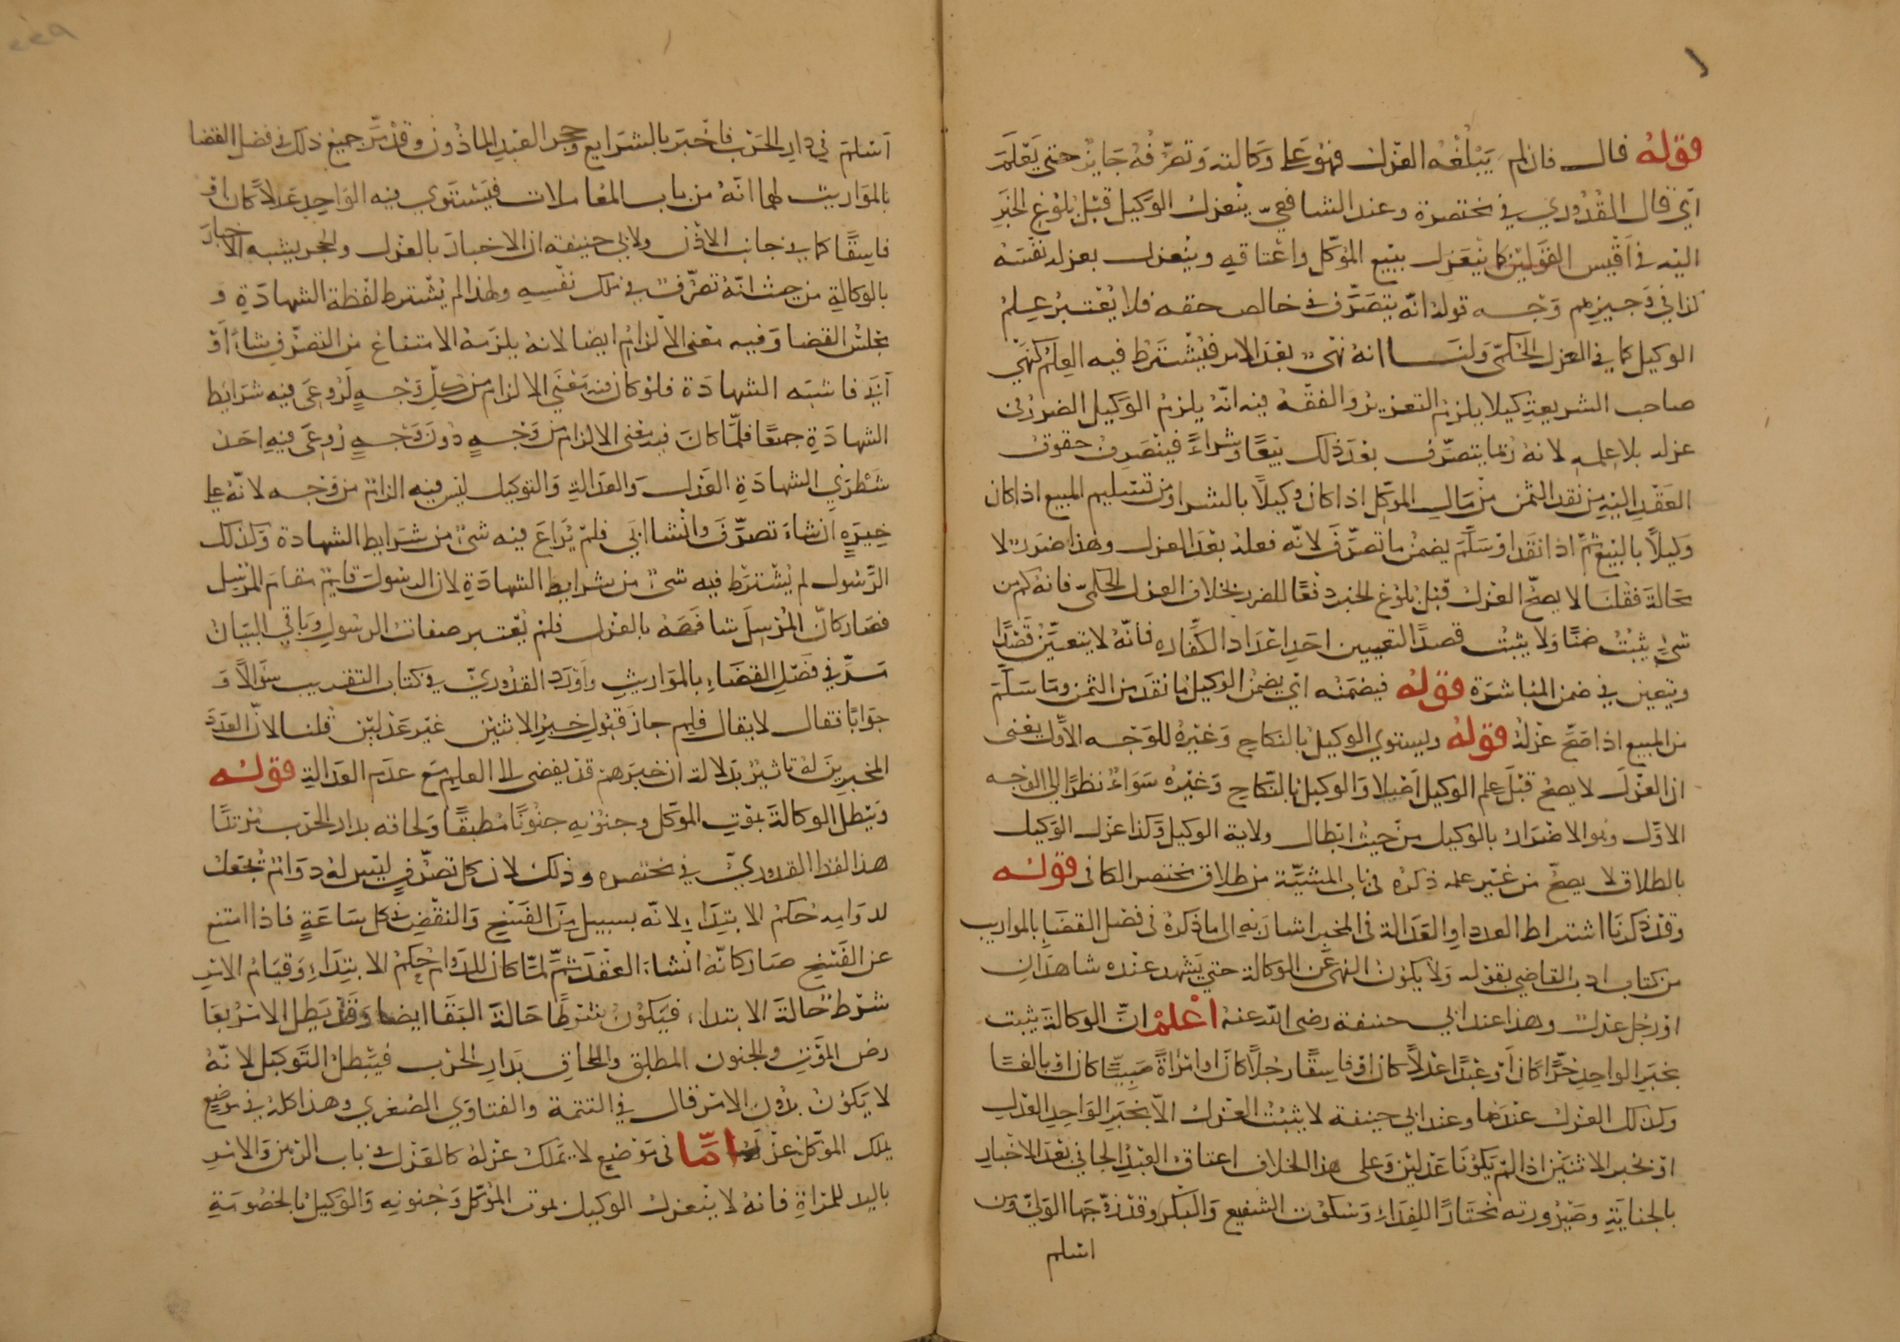 قوله قال فان لم يبلغه العزل فهو على وكالته وتصرفه جايز حتى يعلم
اي قال القدوري في مختصره وعند الشافعي ينعزل الوكيل قبل بلوغ الخبر
اليه في اقيس القولين كما ينعزل ببيع الموكل واعتاقه وينعزل بعزله نفسه
كذا في وجيزهم وجه قوله انه يتصرف في خالص حقه فلا يعتبر علم
الوكيل كما في العزل الحكمي ولنا انه نهي بعد الامر فيشترط فيه العلم كنهي
صاحب الشريعة كيلا يلزم التعزير والفقه فيه انه يلزم الوكيل الضرر في
عزله بلا علمه لانه ربما يتصرف بعد ذلك بيعا وشراء فينصرف حقوق
العقد اليه من نقد الثمن من مال الموكل اذا كان وكيلا بالشرا ومن تسليم المبيع اذا كان
وكيلا بالبيع ثم اذا نقد او سلم يضمن ما تصرف لانه فعله بعد العزل وهذا ضرر لا
محالة فقلنا لا يصح العزل قبل بلوغ الخبر دفعا للضرر بخلاف العزل الحكمي فانه كم من
شي يثبت ضمنا ولا يثبت قصدا لتعيين احد اعداد الكفاره فانه لا يتعين قصدا
ويتعين في ضمن المباشرة قوله فيضمنه اي يضمن الوكيل ما نقد من الثمن وما سلم
من المبيع اذا صح عزله قوله ويستوي الوكيل بالنكاح وغيره للوجه الاول يعني
ان العزل لا يصح قبل علم الوكيل اصلا والوكيل بالنكاح وغيره سواء نظرا الى الوجه
الاول وهو الاضرار بالوكيل من حيث ابطال ولاية الوكيل وكذا عزل الوكيل
بالطلاق لا يصح من غير علمه ذكره في باب المشيّة من طلاق مختصر الكافي قوله
وقد ذكرنا اشتراط العدد او العدالة في المخبر اشار به الى ما ذكره في فصل القضا بالمواريث
من كتاب ادب القاضي بقوله ولا يكون النهي عن الوكالة حتى يشهد عنده شاهدان
او رجل عدل وهذا عند ابي حنيفة رضي الله عنه اعلم ان الوكالة يثبت
بخبر الواحد حرا كان او عبدا عدلا كان او فاسقا رجلا كان او امراة صبيّا كان او بالغا
وكذلك العزل عندهما وعند ابي حنيفة لا يثبت العزل الا بخبر الواحد العدل
او بخبر الاثنين اذا لم يكونا عدلين وعلى هذا الخلاف اعتاق العبد الجاني بعد الاخبار
بالجناية وصيرورته مختارا للفداء وسكوت الشفيع والبكر وقد زوجها الولي ومن
اسلم
اسلم في دار الحرب فاخبر بالشرايع وحجر العبد الماذون وقد مر جميع ذلك في فصل القضا
بالمواريث لهما انه من باب المعاملات فيستوي فيه الواحد عدلا كان او
فاسقا كما في جانب الاذن ولابي حنيفة ان الاخبار بالعزل والحجر يشبه الاخبار
بالوكالة من حيث انه تصرف في ملك نفسه ولهذا لم يشترط لفظة الشهادة و
مجلس القضا وفيه معنى الالزام ايضا لانه يلزمه الامتناع من التصرف شاء او
ابى فاشبه الشهادة فلو كان فيه معنى الالزام من كل وجه لروعى فيه شرايط
الشهادة جمعا فلما كان فيه معنى الالزام من وجه دون وجه روعى فيه احد
شطري الشهادة العدد والعدالة والتوكيل ليس فيه الزام من وجه لانه على
خيرة ان شاء تصرف وان شا ابى فلم يراع فيه شئ من شرايط الشهادة وكذلك
الرسول لم يشترط فيه شئ من شرايط الشهادة لان الرسول قايم مقام المرسل
فصار كان المرسل شافهه بالعزل فلم يعتبر صفات الرسول وباقي البيان
مر في فصل القضاء بالمواريث واورد القدوري في كتاب التقريب سوالا و
جوابا فقال لا يقال فلم جاز قبول خبر الاثنين غير عدلين قلنا لان العدد
المخبرين له تاثير بدلالة ان خبرهم قد يفضي الى العلم مع عدم العدالة قوله
ويبطل الوكالة بموت الموكل وجنونه جنونا مطبقا ولحاقه بدار الحرب مرتدا
هذا لفظ القدوري في مختصره وذلك لان كل تصرف ليس له دوام يجعل
لدوامه حكم الابتداء لانه بسبيل من الفسخ والنقض في كل ساعة فاذا امتنع
عن الفسخ صار كانه انشاء العقد ثم لما كان للدوام حكم الابتداء وقيام الامر
شرط حالة الابتداء فيكون شرطا حالة البقا ايضا وقد بطل الامر بعا
رض الموت والجنون المطبق واللحاق بدار الحرب فيبطل التوكيل لانه
لا يكون بدون الامر قال في التتمة والفتاوي الصغري وهذا كله في موضع
يملك الموكل عزله اما في موضع لا يملك عزله كالعدل في باب الرهن والامر
باليد للمراة فانه لا ينعزل الوكيل بموت الموكل وجنونه والوكيل بالخصومة